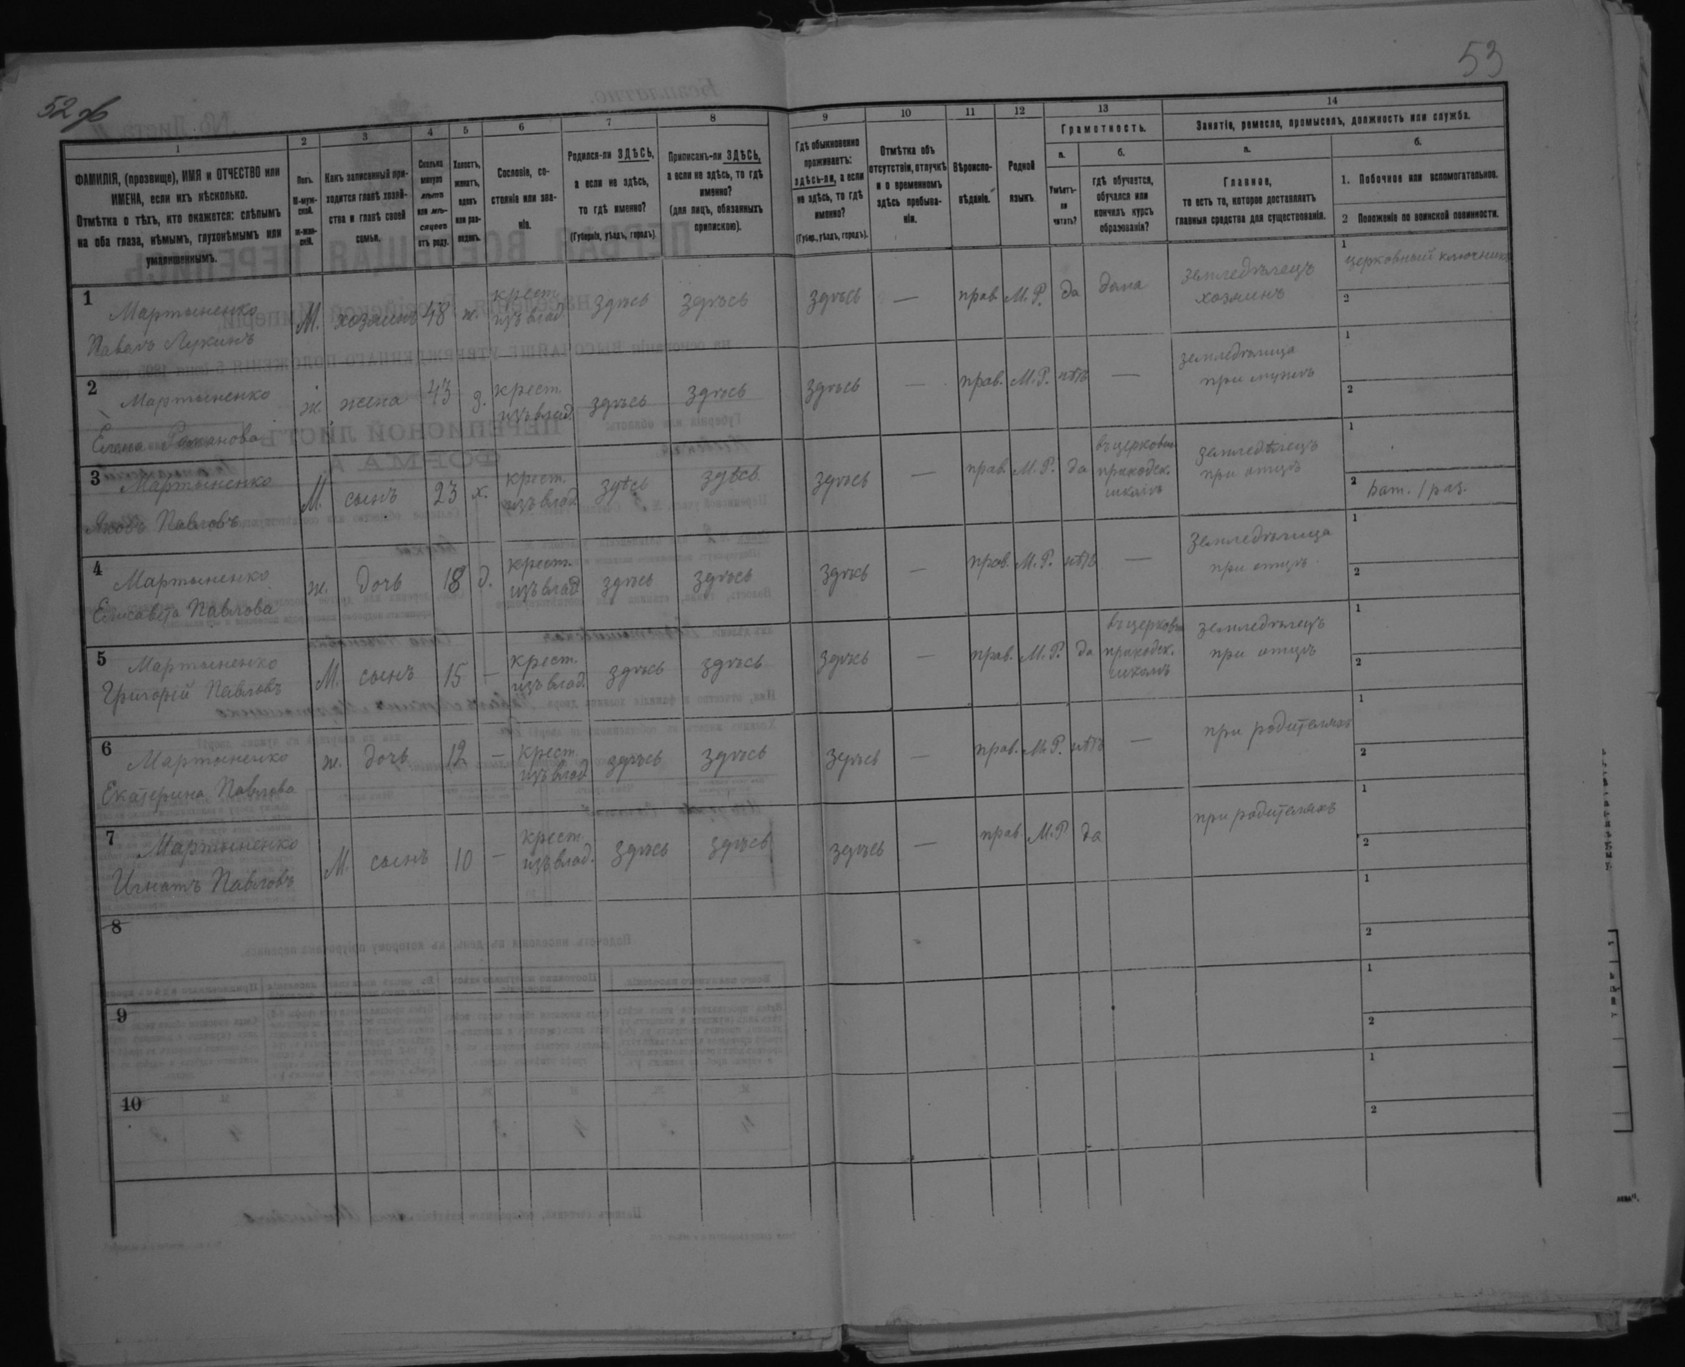 52 об
53
1
ФАМИЛІЯ, (прозвище), ИМЯ и ОТЧЕСТВО или
ИМЕНА, если ихъ нѣсколько.
Отмѣтка о тѣхъ, кто окажется: слѣпымъ
на оба глаза, нѣмымъ, глухонѣмымъ или
умалишеннымъ.
2
Полъ.
М-муж-
ской.
ж-жен-
скій.
3
Какъ записанный при-
ходится главѣ хозяй-
ства и главѣ своей
семьи.
4
Сколько
минуло
лѣтъ
или мѣ-
сяцевъ
отъ роду.
5
Холостъ,
женатъ,
вдовъ
или раз-
веденъ.
6
Сословіе, со-
стояніе или зва-
ніе.
7
Родился-ли ЗДѢСЬ,
а если не здѣсь,
то гдѣ именно?
(Губернія, уѣздъ, городъ).
8
Приписанъ-ли ЗДѢСЬ,
а если не здѣсь, то гдѣ
именно?
(для лицъ, обязанныхъ
припискою).
9
Гдѣ обыкновенно
проживаетъ:
здѣсь-ли, а если
не здѣсь, то гдѣ
именно?
(Губер., уѣздъ, городъ).
10
Отмѣтка объ
отсутствіи, отлучкѣ
и о временномъ
здѣсь пребыва-
ніи.
11
Вѣроиспо-
вѣданіе.
12
Родной
языкъ.
13
Грамотность.
а.
Умѣетъ-
ли
читать?
б.
гдѣ обучается,
обучался или
кончилъ курсъ
образованія?
14
Занятіе, ремесло, промыселъ, должность или служба.
а.
Главное,
то есть то, которое доставляетъ
главныя средства для существованія.
б.
1. Побочное или вспомогательное.
2 Положеніе по воинской повинности.
1
Мартыненко
Павелъ Лукинъ
М.
хозяинъ
48
ж.
крест.
изъ влад.
здѣсь
здѣсь
здѣсь
—
прав.
М. Р.
да
дома
земледѣлецъ
хозяинъ
1
церковный ключникъ
2
2
Мартыненко
Елена Романова
ж.
жена
43
з.
крест.
изъ влад.
здѣсь
здѣсь
здѣсь
—
прав.
М. Р.
нѣтъ
—
земледѣлица
при мужѣ
1
2
3
Мартыненко
Яковъ Павловъ
М.
сынъ
23
х.
крест.
изъ влад.
здѣсь
здѣсь
здѣсь
—
прав.
М. Р.
да
въ церковно
приходск.
школѣ
земледѣлецъ
при отцѣ
1
2
рат. 1 раз.
4
Мартыненко
Елисавета Павлова
ж.
дочь
18
д.
крест.
изъ влад.
здѣсь
здѣсь
здѣсь
—
прав.
М. Р.
нѣтъ
—
земледѣлица
при отцѣ
1
2
5
Мартыненко
Григорій Павловъ
М.
сынъ
15
—
крест.
изъ влад.
здѣсь
здѣсь
здѣсь
—
прав.
М. Р.
да
въ церковно
приходск.
школѣ
земледѣлецъ
при отцѣ
1
2
6
Мартыненко
Екатерина Павлова
ж.
дочь
12
—
крест.
изъ влад.
здѣсь
здѣсь
здѣсь
—
прав.
М. Р.
нѣтъ
—
при родителяхъ
1
2
7
Мартыненко
Игнатъ Павловъ
М.
сынъ
10
—
крест.
изъ влад.
здѣсь
здѣсь
здѣсь
—
прав.
М. Р.
да
при родителяхъ
1
2
8
1
2
9
1
2
10
1
2